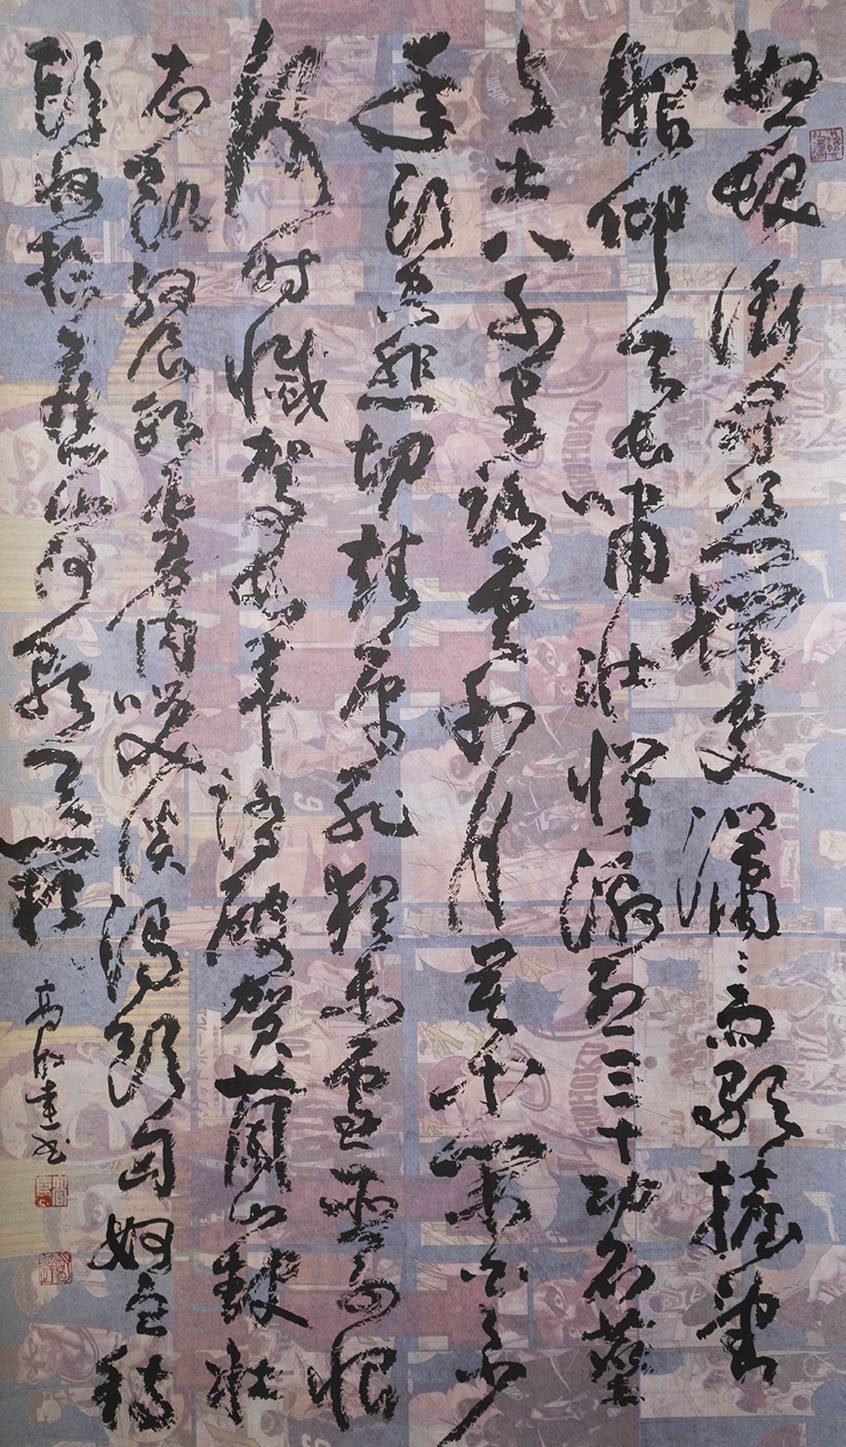 怒髮衝冠憑欄處瀟〻雨歇擡望
眼仰天長嘯壯懷激烈三十功名塵
与土八千里路雲和月莫等閑白了少
年頭空悲切靖康恥猶未雪臣子恨
何時滅駕長車踏破賀蘭山缺壯
志飢餐胡虜肉笑談渴飲匈奴血待
頭收拾舊山河朝天闕
SHOHOKU
SHOHOKU
6